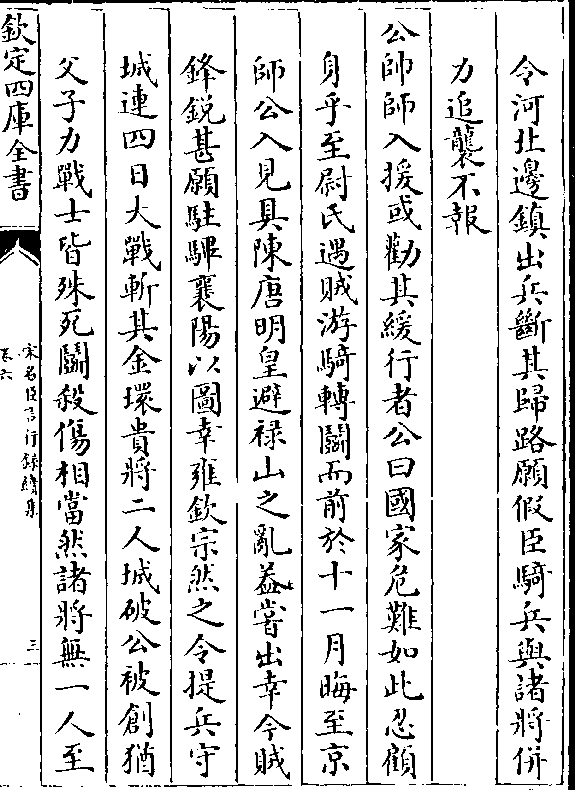 令河北邊鎮出兵斷其歸路願假臣騎兵與諸將併
力追襲不報
公帥師入援或勸其緩行者公曰國家危難如此忍顧
身乎至尉氏遇賊游騎轉鬬而前於十一月晦至京
師公入見具陳唐明皇避祿山之亂葢嘗出幸今賊
鋒銳甚願駐驆襄陽以圖幸雍欽宗然之令提兵守
城連四日大戰斬其金環貴將二人城破公被創猶
父子力戰士皆殊死鬬殺傷相當然諸將無一人至
欽定四庫全書
宋名臣言行錄續集
卷六
三